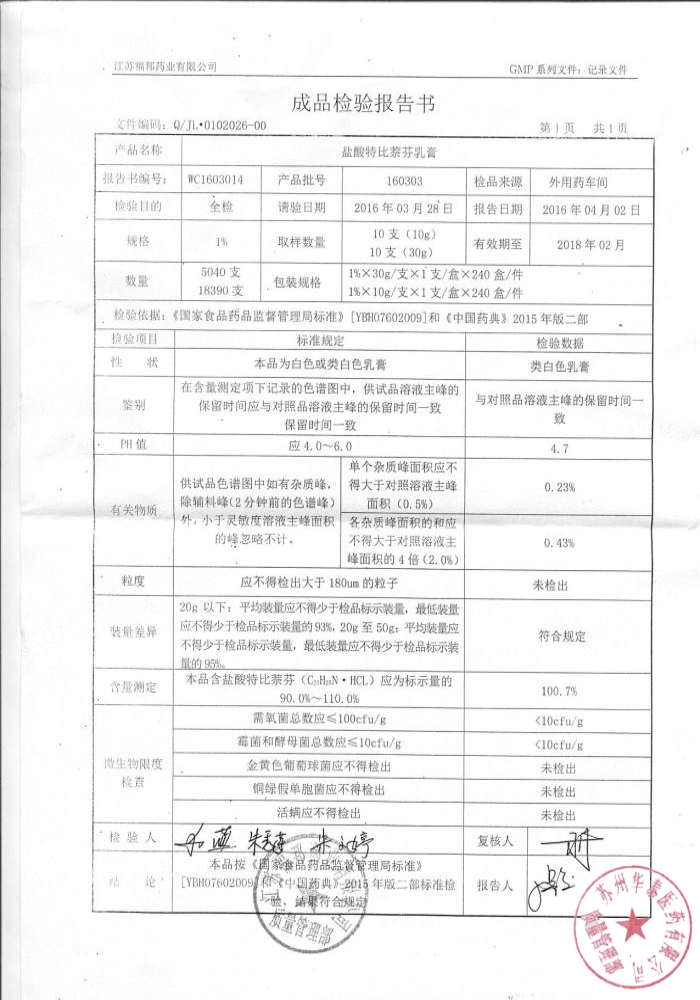 江苏福邦药业有限公司 GMP 系列文件：记录文件
成品检验报告书
文件编码：Q/JL·0102026-00 第1页 共1页
产品名称 盐酸特比萘芬乳膏
报告书编号： WC1603014 产品批号 160303 检品来源 外用药车间
检验目的 全检 请验日期 2016年03月28日 报告日期 2016年04月02日
规格 1% 取样数量 10支（10g） 有效期至 2018年02月
10支（30g）
数量 5040支 包装规格 1%×30g/支×1支/盒×240盒/件
18390支 1%×10g/支×1支/盒×240盒/件
检验依据：《国家食品药品监督管理局标准》[YBH07602009]和《中国药典》2015年版二部
检验项目 标准规定 检验数据
性 状 本品为白色或类白色乳膏 类白色乳膏
鉴别 在含量测定项下记录的色谱图中，供试品溶液主峰的
保留时间应与对照品溶液主峰的保留时间一致
保留时间一致
与对照品溶液主峰的保留时间一
致
PH值 应4.0～6.0 4.7
有关物质 供试品色谱图中如有杂质峰，
除辅料峰(2分钟前的色谱峰)
外，小于灵敏度溶液主峰面积
的峰忽略不计。
单个杂质峰面积应不
得大于对照溶液主峰
面积（0.5%）
0.23%
各杂质峰面积的和应
不得大于对照溶液主
峰面积的4倍(2.0%)
0.43%
粒度 应不得检出大于180um的粒子 未检出
装量差异 20g以下：平均装量应不得少于检品标示装量，最低装量
应不得少于检品标示装量的93%，20g至50g：平均装量应
不得少于检品标示装量，最低装量应不得少于检品标示装
量的95%。
符合规定
含量测定 本品含盐酸特比萘芬（C₂₁H₂₆N·HCL）应为标示量的
90.0%～110.0%
100.7%
微生物限度
检查
需氧菌总数应≤100cfu/g <10cfu/g
霉菌和酵母菌总数应≤10cfu/g <10cfu/g
金黄色葡萄球菌应不得检出 未检出
铜绿假单胞菌应不得检出 未检出
活螨应不得检出 未检出
检 验 人 复核人
结 论 本品按《国家食品药品监督管理局标准》
[YBH07602009]和《中国药典》2015年版二部标准检
验，结果符合规定
报告人
质量管理部
苏州华泰医药有限公司
质量管理部